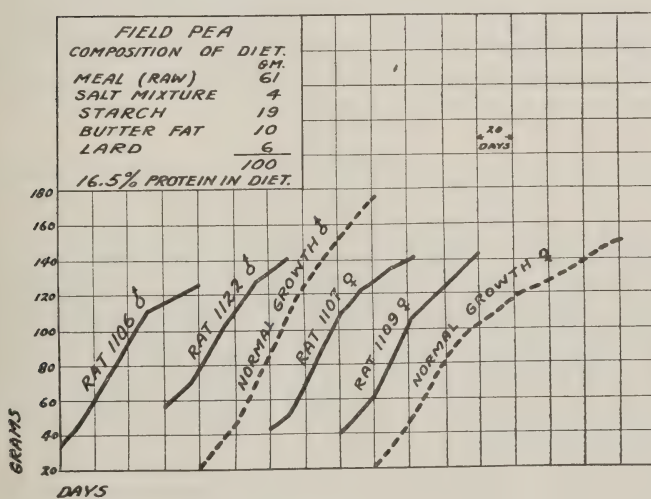 FIELD PEA
COMPOSITION OF DIET.
GM.
MEAL (RAW) 61
SALT MIXTURE 4
STARCH 19
BUTTER FAT 10
LARD 6
100
16.5% PROTEIN IN DIET.
20
DAYS
180
160
140
120
100
80
60
40
20
GRAMS
DAYS
RAT 1106 ♂
RAT 1122 ♂
NORMAL GROWTH ♂
RAT 1107 ♀
RAT 1109 ♀
NORMAL GROWTH ♀